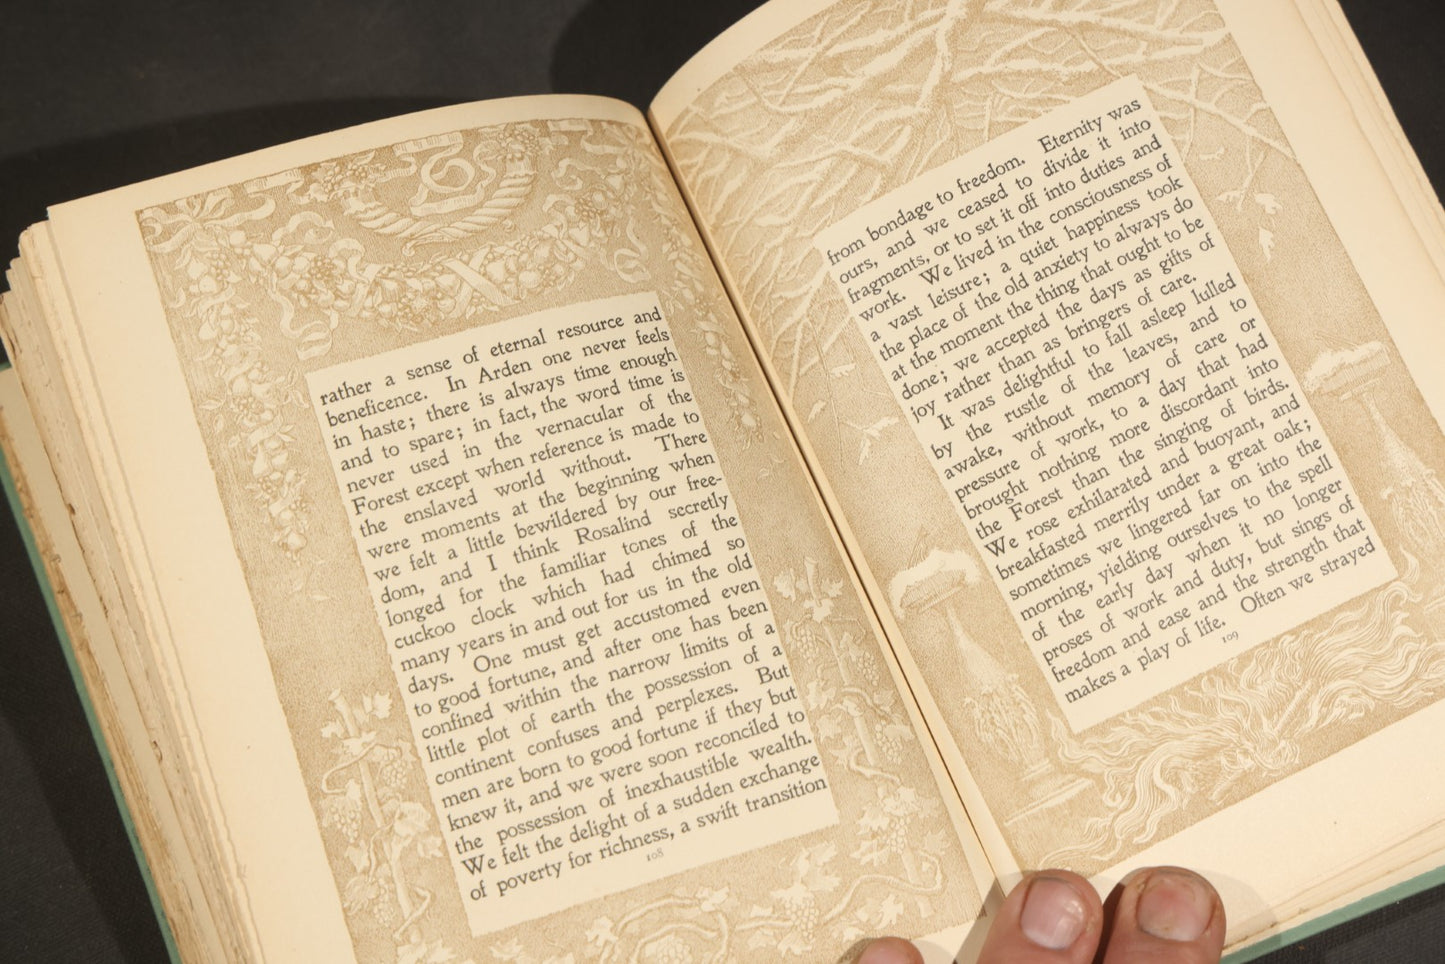 rather a sense of eternal resource and
beneficence. In Arden one never feels
in haste; there is always time enough
and to spare; in fact, the word time is
never used in the vernacular of the
Forest except when reference is made to
the enslaved world without. There
were moments at the beginning when
we felt a little bewildered by our free-
dom, and I think Rosalind secretly
longed for the familiar tones of the
cuckoo clock which had chimed so
many years in and out for us in the old
days. One must get accustomed even
to good fortune, and after one has been
confined within the narrow limits of a
little plot of earth the possession of a
continent confuses and perplexes. But
men are born to good fortune if they but
knew it, and we were soon reconciled to
the possession of inexhaustible wealth.
We felt the delight of a sudden exchange
of poverty for richness, a swift transition
108
from bondage to freedom. Eternity was
ours, and we ceased to divide it into
fragments, or to set it off into duties and
work. We lived in the consciousness of
a vast leisure; a quiet happiness took
the place of the old anxiety to always do
at the moment the thing that ought to be
done; we accepted the days as gifts of
joy rather than as bringers of care.
It was delightful to fall asleep lulled
by the rustle of the leaves, and to
awake, without memory of care or
pressure of work, to a day that had
brought nothing more discordant into
the Forest than the singing of birds.
We rose exhilarated and buoyant, and
breakfasted merrily under a great oak;
sometimes we lingered far on into the
morning, yielding ourselves to the spell
of the early day when it no longer
proses of work and duty, but sings of
freedom and ease and the strength that
makes a play of life. Often we strayed
109